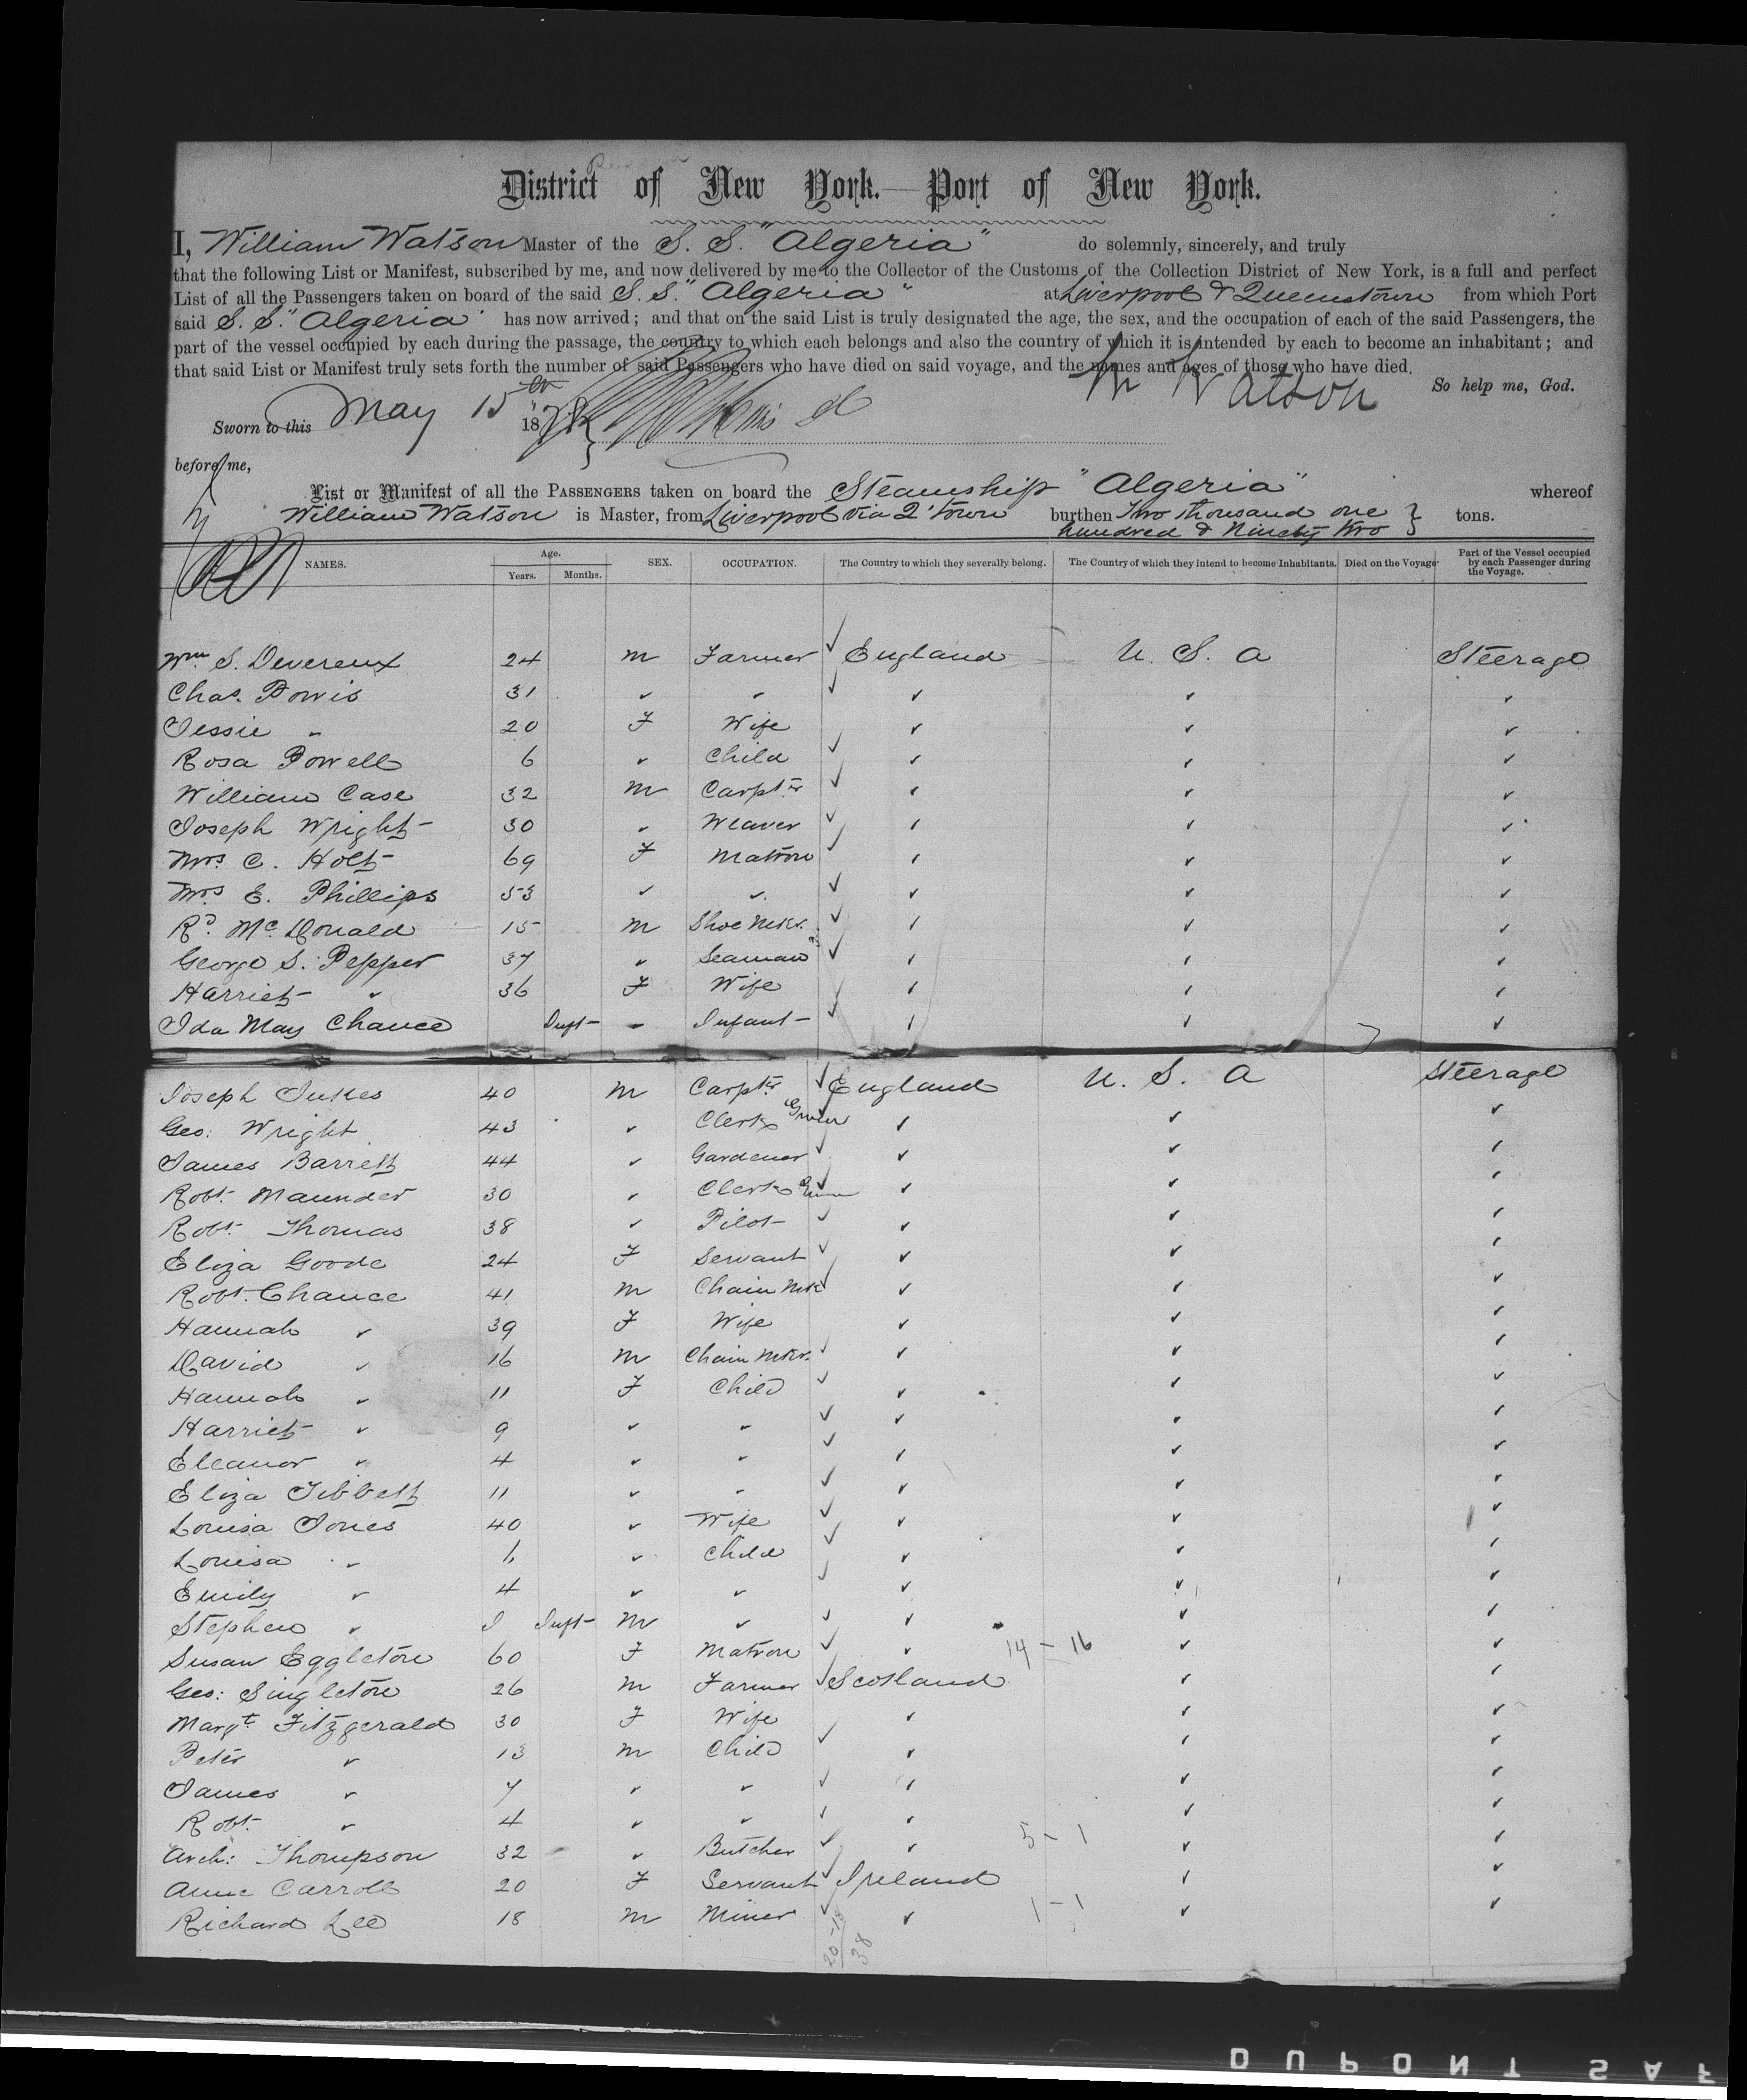 District of New York.—Port of New York.
I, William Watson Master of the S. S. "Algeria" do solemnly, sincerely, and truly
that the following List or Manifest, subscribed by me, and now delivered by me to the Collector of the Customs of the Collection District of New York, is a full and perfect
List of all the Passengers taken on board of the said S. S. "Algeria" at Liverpool & Queenstown from which Port
said S. S. "Algeria" has now arrived; and that on the said List is truly designated the age, the sex, and the occupation of each of the said Passengers, the
part of the vessel occupied by each during the passage, the country to which each belongs and also the country of which it is intended by each to become an inhabitant; and
that said List or Manifest truly sets forth the number of said Passengers who have died on said voyage, and the names and ages of those who have died.
So help me, God.
Wm Watson
Sworn to this May 15th 187
before me,
List or Manifest of all the PASSENGERS taken on board the Steamship "Algeria" whereof
William Watson is Master, from Liverpool via Q'town burthen Two thousand one hundred & Ninety two } tons.
NAMES. Age. Years. Months. SEX. OCCUPATION. The Country to which they severally belong. The Country of which they intend to become Inhabitants. Died on the Voyage. Part of the Vessel occupied by each Passenger during the Voyage.
Wm S. Devereux 24 m Farmer ✓ England U. S. a Steerage
Chas. Powis 31 " " ✓ " " "
Jessie " 20 F Wife " " "
Rosa Powell 6 " Child ✓ " " "
William Case 32 m Carptr ✓ " " "
Joseph Wright 30 " Weaver ✓ " " "
Mrs C. Holt 69 F Matron ✓ " " "
Mrs E. Phillips 53 " " ✓ " " "
Rd. McDonald 15 m Shoe Mkr. ✓ " " "
George S. Pepper 37 " Seaman ✓ " " "
Harriet " 36 F Wife ✓ " " "
Ida May Chance Inft " Infant ✓ " " "
Joseph Jukes 40 m Carptr ✓ England U. S. a Steerage
Geo: Wright 43 " Clerk " " "
James Barrett 44 " Gardener ✓ " " "
Robt. Maunder 30 " Clerk ✓ " " "
Robt. Thomas 38 " Pilot ✓ " " "
Eliza Goode 24 F Servant ✓ " " "
Robt. Chance 41 m Chain Mkr ✓ " " "
Hannah " 39 F Wife " " "
David " 16 m Chain Mkr. ✓ " " "
Hannah " 11 F Child ✓ " " "
Harriet " 9 " " ✓ " " "
Eleanor " 4 " " ✓ " " "
Eliza Tibbett 11 " " ✓ " " "
Louisa Jones 40 " Wife ✓ " " "
Louisa " 6 " Child ✓ " " "
Emily " 4 " " ✓ " " "
Stephen " Inft m " ✓ " " "
Susan Eggleton 60 F Matron ✓ " 14 - 16 " "
Geo: Singleton 26 m Farmer ✓ Scotland " "
Margt. Fitzgerald 30 F Wife " " "
Peter " 13 m Child ✓ " " "
James " 7 " " ✓ " " "
Robt. " 4 " " ✓ " " "
Arch: Thompson 32 " Butcher ✓ " 5 - 1 " "
Anne Carroll 20 F Servant ✓ Ireland " "
Richard Lee 18 m Miner ✓ " 1 - 1 " "
20-18
38
DUPONT SAF